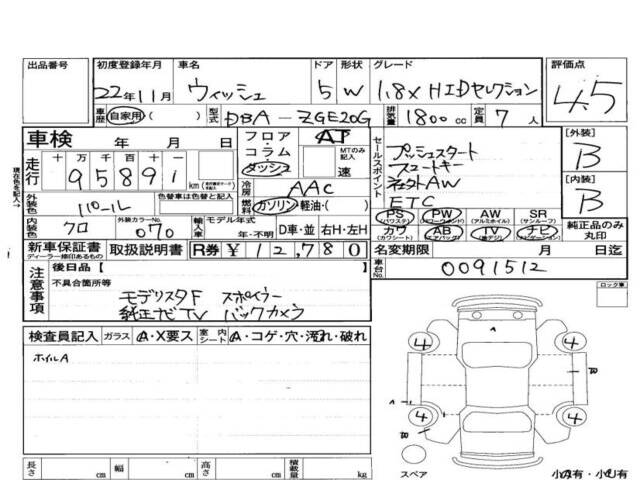 出品番号 初度登録年月 車名 ドア 形状 グレード 評価点
22年11月 ウィッシュ 5 W 1.8X HIDセレクション 4.5
車歴 自家用( ) 型式 DBA-ZGE20G 排気量 1800cc 定員 7人
車検 年 月 日 フロア・コラム・ダッシュ AT MTのみ記入 速
走行 十 万 千 百 十 一
95891 km
冷房 AAC
セールスポイント プッシュスタート
スマートキー
チェクトAW
ETC
[外装] B
[内装] B
外装色 パール 色替車は色替と記入 ガソリン・軽油・( )
内装色 クロ 外装カラーNo. 070 輸入車 モデル年式 年・不明 D車・並 右H・左H
PS (パワステ) PW (パワーウィンド) AW (アルミホイル) SR (サンルーフ)
カワ (カワシート) AB (エアバッグ) TV (地デジ) ナビ (ナビゲーション)
純正品のみ丸印
新車保証書 ディーラー捺印あるもの 取扱説明書 R券 ¥12,780 名変期限 月 日迄
注意事項 後日品[ ] 車台No. 0091512
不具合箇所等
モデリスタF スポイラー
純正ナビTV バックカメラ
ロック車
検査員記入 ガラス A・X要ス 室内シート A・コゲ・穴・汚れ・破れ
ホイルA
4 4
4 4
A
長さ cm 幅 cm 高さ cm 積載量 kg
スペア
現在色を記入→